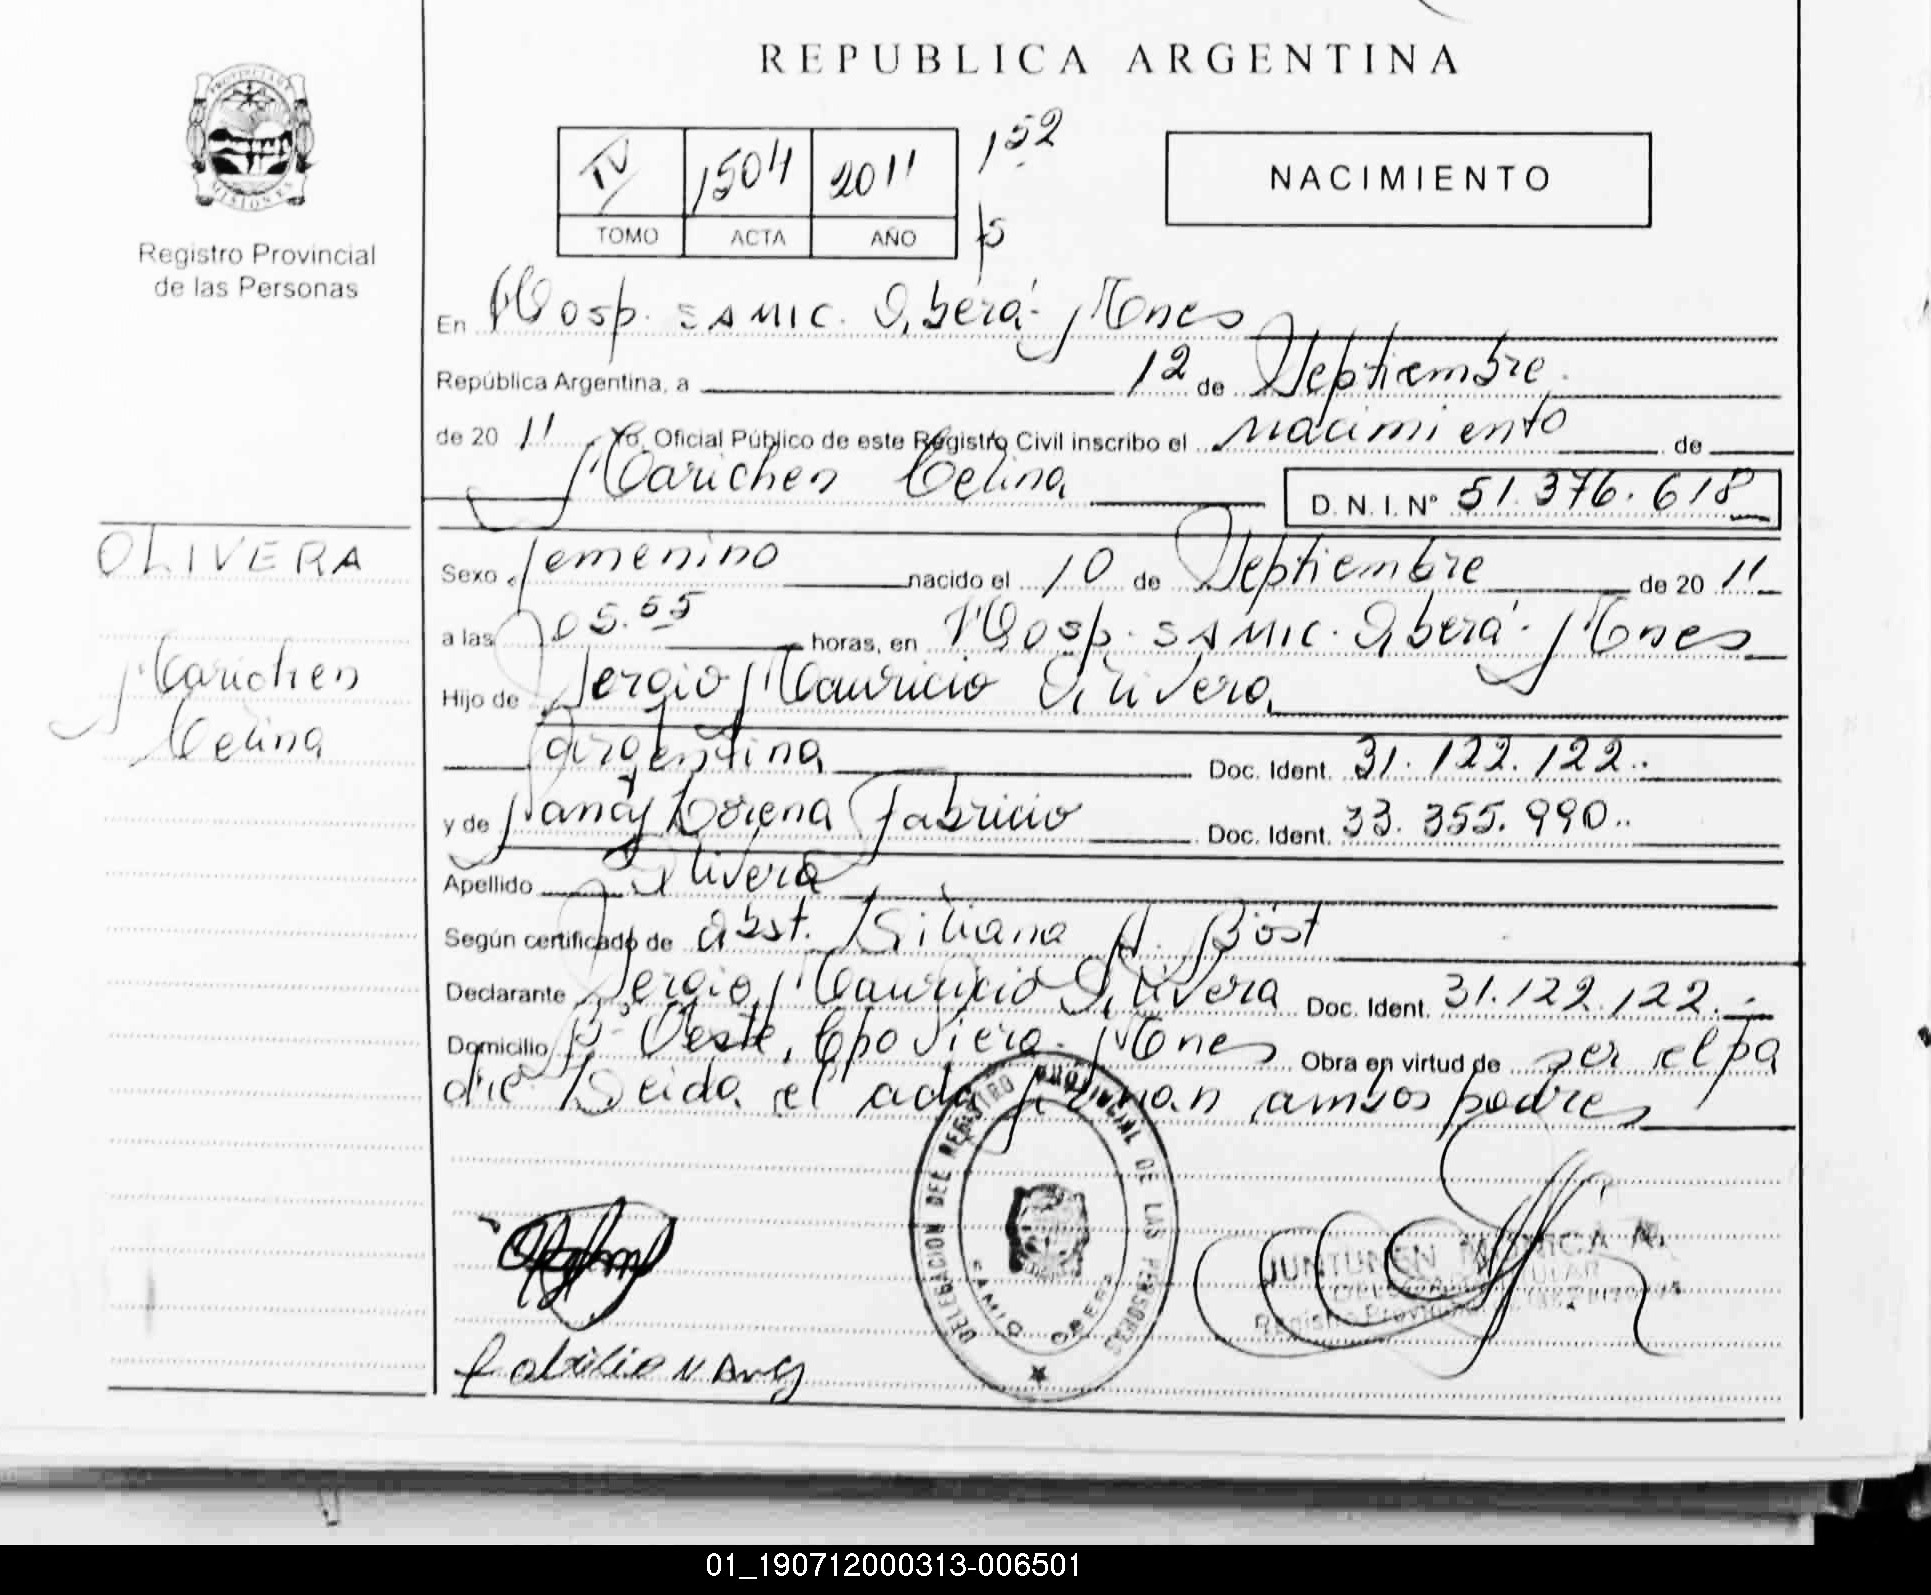 REPUBLICA ARGENTINA
PROVINCIA DE MISIONES
Registro Provincial
de las Personas
IV 1504 2011 152
TOMO ACTA AÑO
NACIMIENTO
En Hosp. SAMIC. Oberá- Mnes
República Argentina, a 12 de Septiembre
de 20 11 Yo, Oficial Público de este Registro Civil inscribo el nacimiento de
Marichen Celina D. N. I. Nº 51.376.618
OLIVERA
Marichen
Celina
Sexo femenino nacido el 10 de Septiembre de 20 11
a las 05.55 horas, en Hosp. SAMIC. Oberá- Mnes
Hijo de Sergio Mauricio Olivera
argentina Doc. Ident. 31.122.122.
y de Nancy Lorena Fabricio Doc. Ident. 33.355.990..
Apellido Olivera
Según certificado de obst. Liliana A. Böst
Declarante Sergio Mauricio Olivera Doc. Ident. 31.122.122.-
Domicilio Bº Oeste, Cpo Viera- Mnes Obra en virtud de ser el pa
dre Leida el acta firman ambos padres
DELEGACION DEL REGISTRO PROVINCIAL DE LAS PERSONAS
JUNTUNEN MONICA
Registro Provincial de las Personas
Fabricio Nancy
01_190712000313-006501